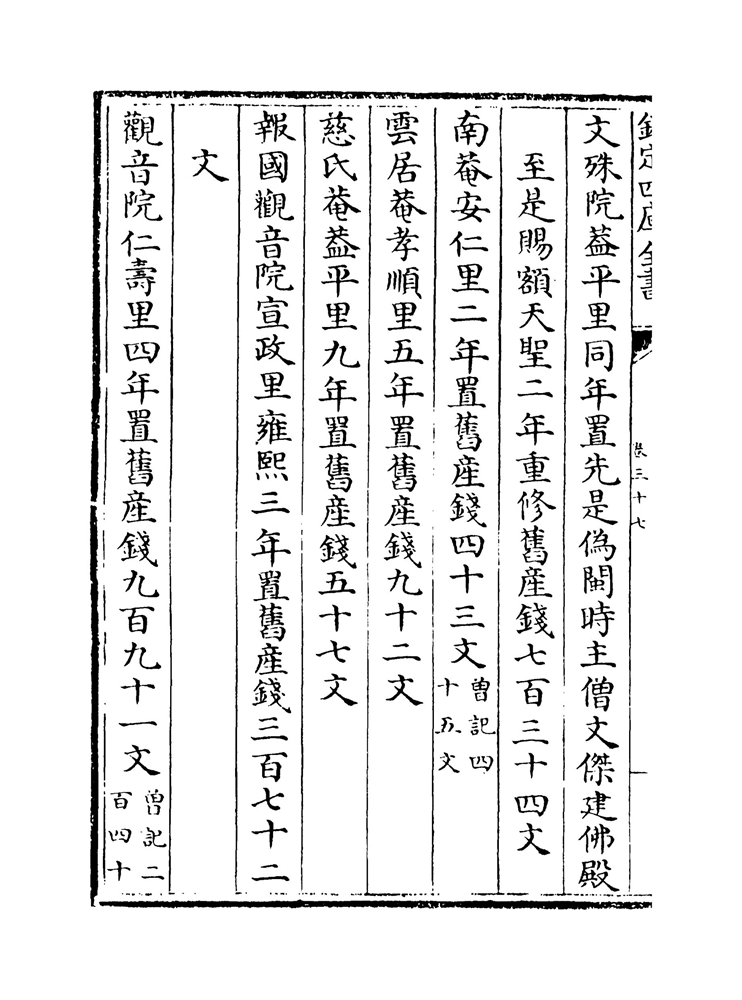 欽定四庫全書
卷三十七
文殊院葢平里同年置先是偽閩時主僧文傑建佛殿
至是賜額天聖二年重修舊産錢七百三十四文
南菴安仁里二年置舊産錢四十三文曽記四十五文
雲居菴孝順里五年置舊産錢九十二文
慈氏菴葢平里九年置舊産錢五十七文
報國觀音院宣政里雍熙三年置舊産錢三百七十二
文
觀音院仁壽里四年置舊産錢九百九十一文曽記二百四十